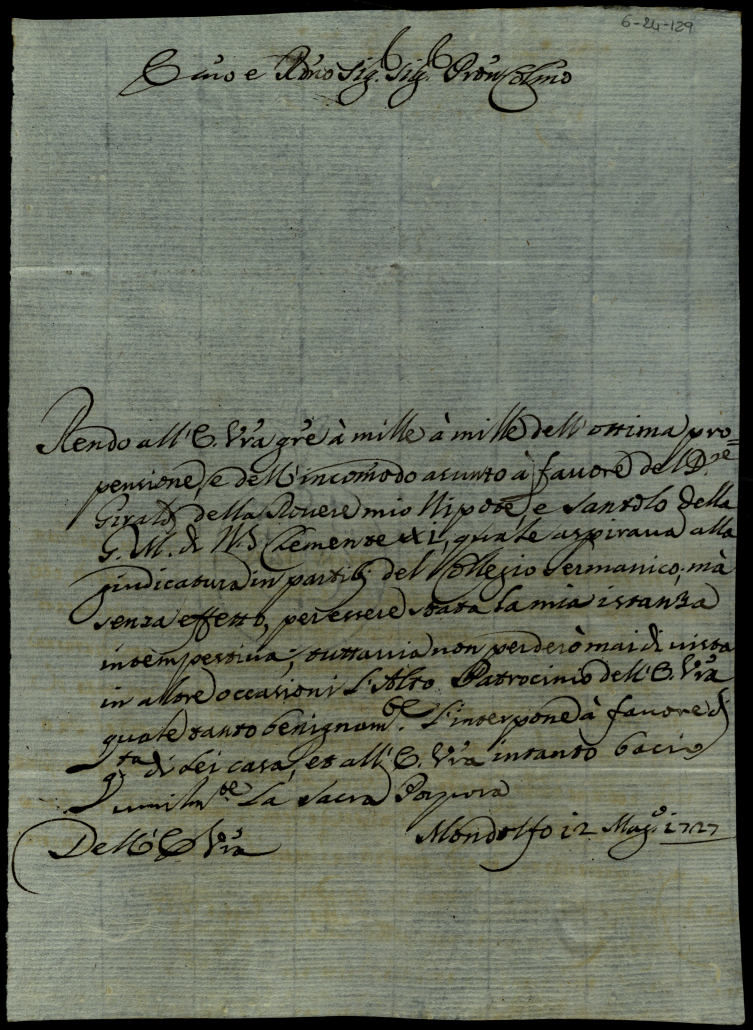 6-24-129
Emo e Rmo Sig.r Sig.r Pron Colmo
Rendo all'E. Vra gre à mille à mille dell'ottima pro=
pensione, e dell'incomodo asunto à favore del D.re
Girald della Rovere mio Nipote, e Santolo della
G. M. di N.S. Clemente XI, quale aspirava alla
giudicatura in partib del Collegio Germanico; mà
senza effetto, per essere stata la mia istanza
intempestiva; tuttavia non perderò mai di vista
in altre occasioni l'Alto Patrocinio dell'E. Vra
quale tanto benignam.te l'interpone à favore di
q.ta di lei casa, et all'E. Vra intanto bacio
umilm.te La Sacra Porpora
Dell'E Vra
Mondolfo 12 Mag.o 1727